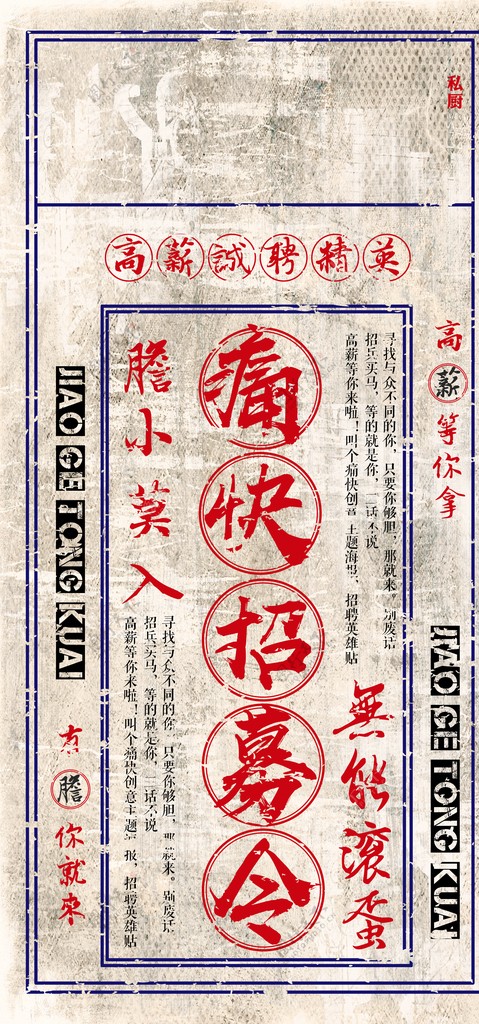 私厨
高薪誠聘精英
高薪等你拿
寻找与众不同的你，只要你够胆，那就来。别废话
招兵买马，等的就是你，二话不说
高薪等你来啦！叫个痛快创意 主题海报，招聘英雄贴
無能滾蛋
JIAO GE TONG KUAI
痛快招募令
膽小莫入
寻找与众不同的你，只要你够胆，那就来。别废话
招兵买马，等的就是你，二话不说
高薪等你来啦！叫个痛快创意主题海报，招聘英雄贴
JIAO GE TONG KUAI
有膽你就來